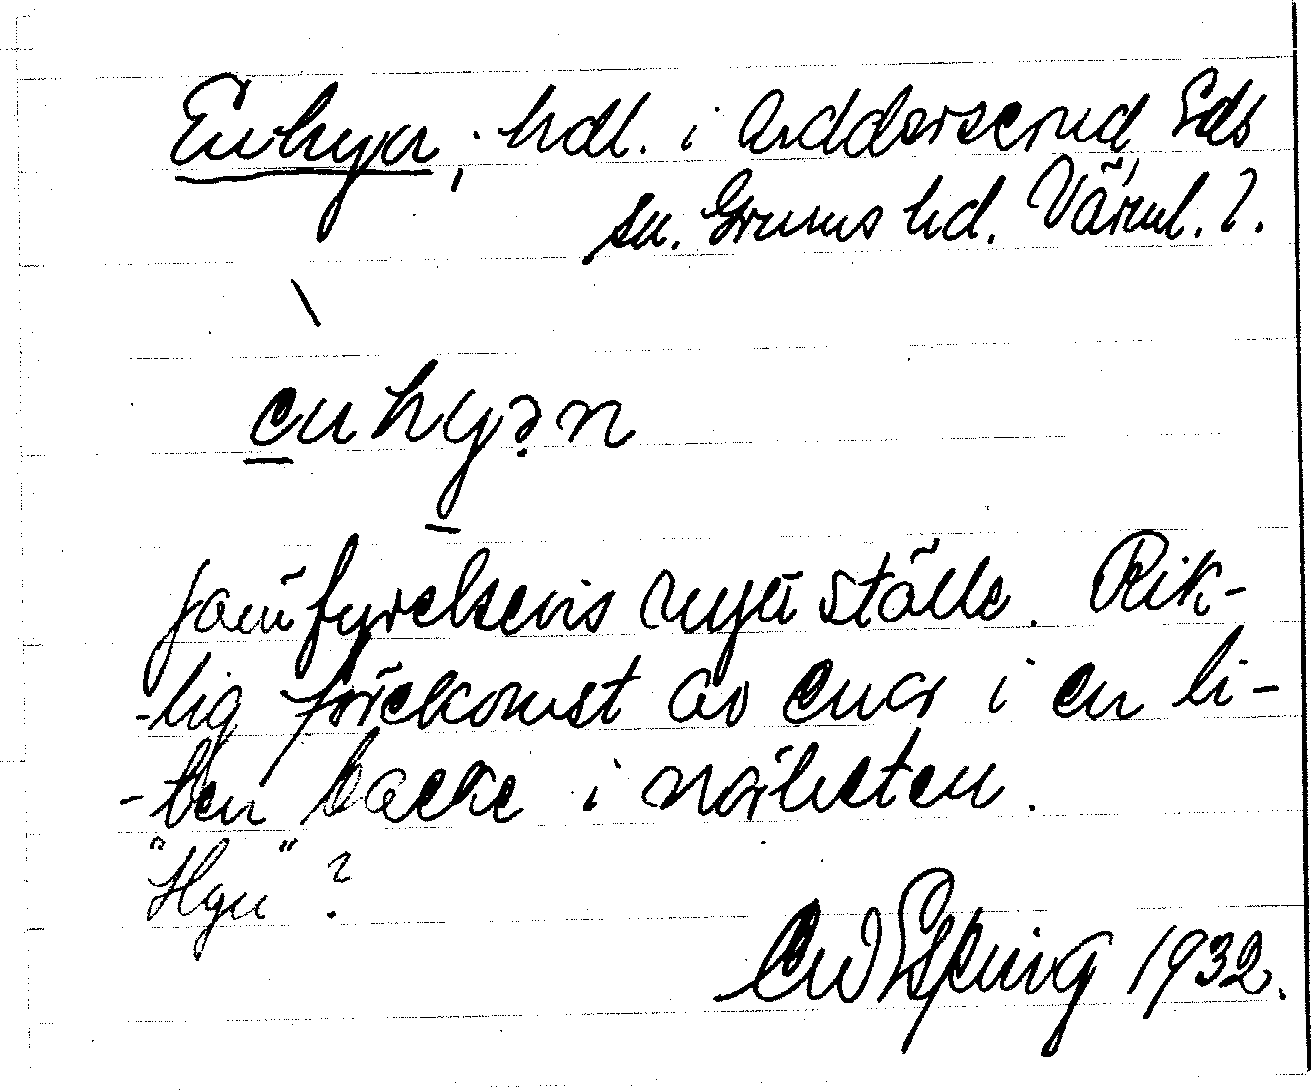 Enhyn, hdl. i Anderserud Eds
sn. Grums hd. Värml. l.
enhyən
Jämförelsevis nytt ställe. Rik-
-lig förekomst av enar i en li-
-ten backe i närheten.
"Hyn"?
1932.